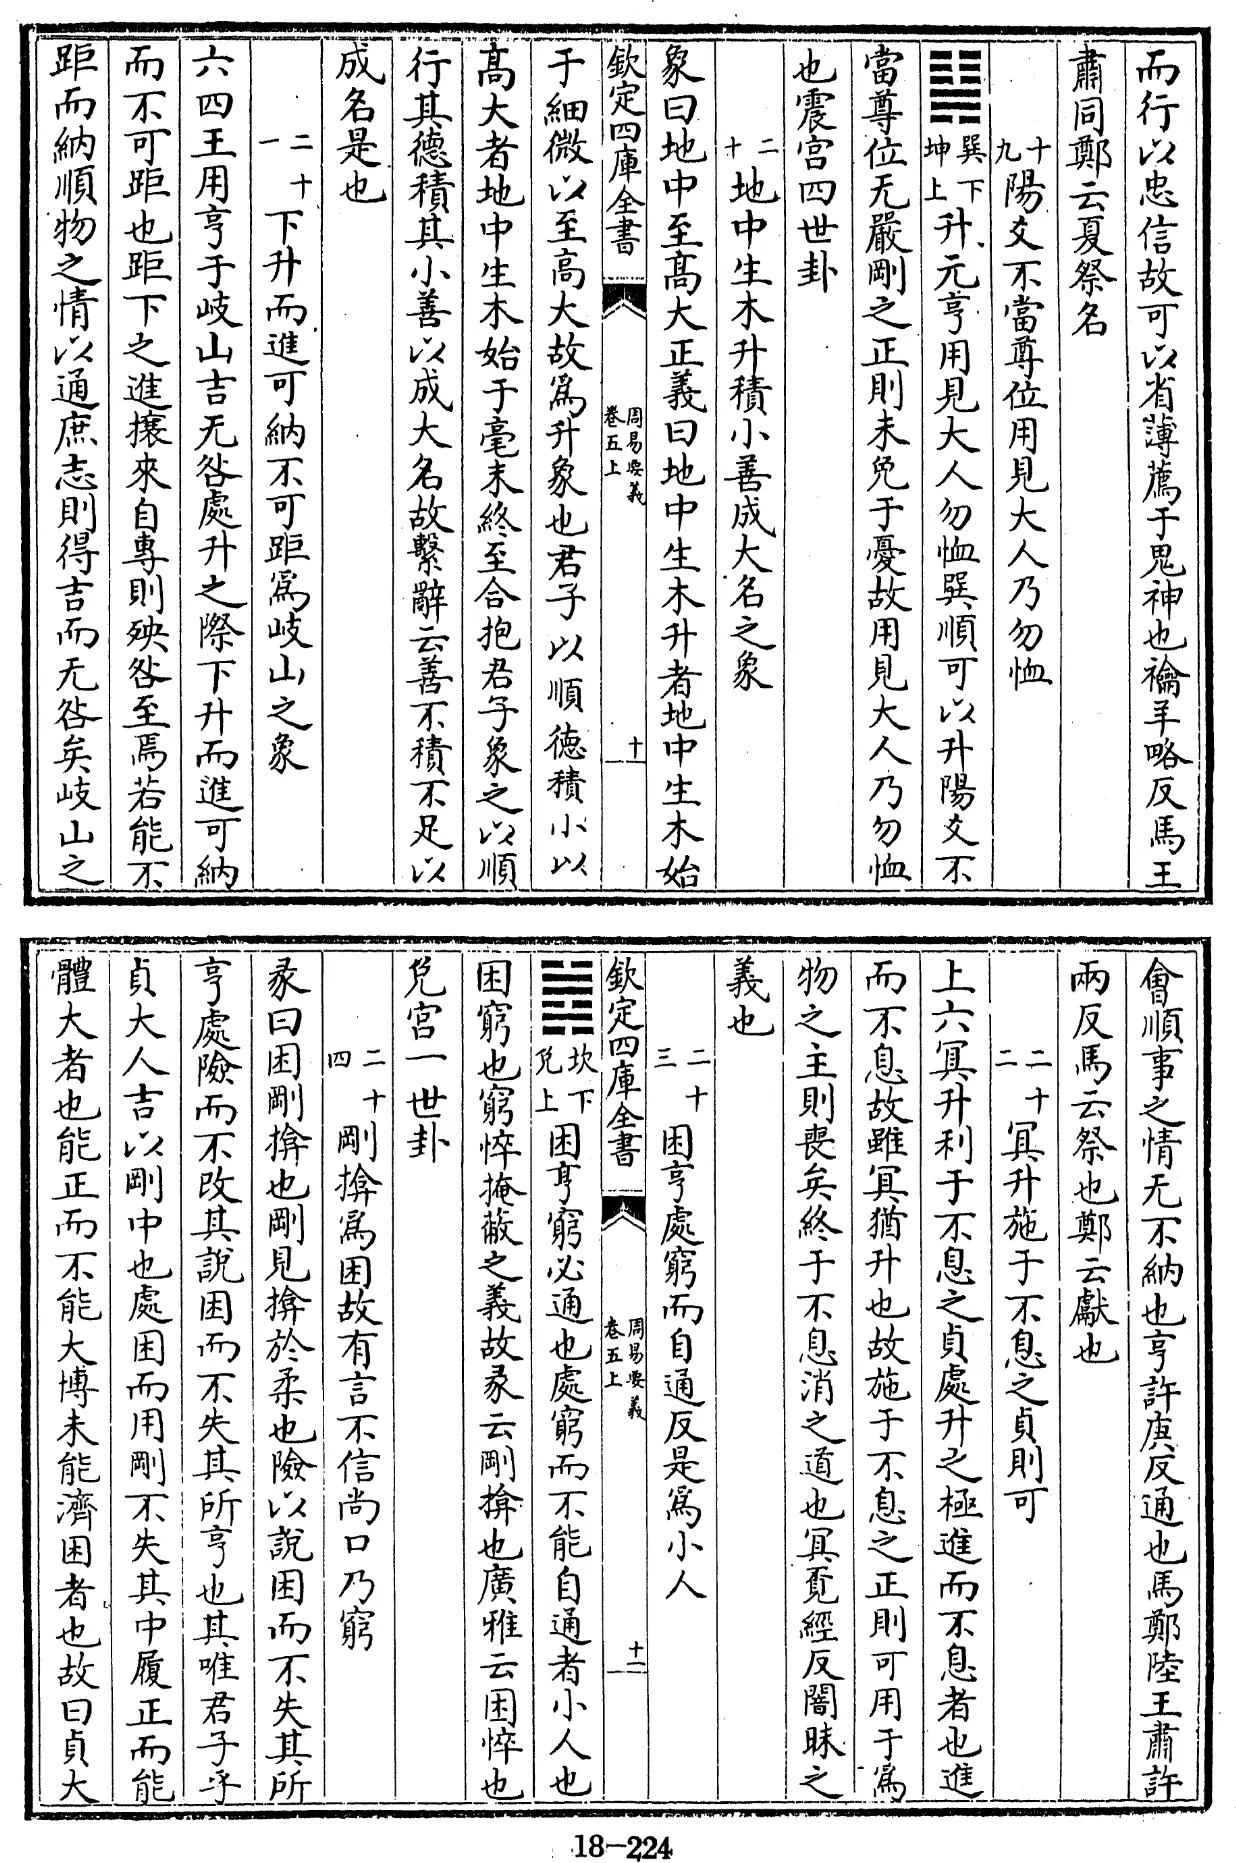 而行以忠信故可以省薄薦于鬼神也禴羊略反馬王
肅同鄭云夏祭名
十九陽爻不當尊位用見大人乃勿恤
䷭巽下坤上升元亨用見大人勿恤巽順可以升陽爻不
當尊位无嚴剛之正則未免于憂故用見大人乃勿恤
也震宮四世卦
二十地中生木升積小善成大名之象
象曰地中至高大正義曰地中生木升者地中生木始
欽定四庫全書
周易要義
卷五上
十
于細微以至高大故爲升象也君子以順德積小以
高大者地中生木始于毫末終至合抱君子象之以順
行其德積其小善以成大名故繫辭云善不積不足以
成名是也
二十一下升而進可納不可距爲岐山之象
六四王用亨于岐山吉无咎處升之際下升而進可納
而不可距也距下之進攘來自專則殃咎至焉若能不
距而納順物之情以通庶志則得吉而无咎矣岐山之
會順事之情无不納也亨許庚反通也馬鄭陸王肅許
兩反馬云祭也鄭云獻也
二十二冥升施于不息之貞則可
上六冥升利于不息之貞處升之極進而不息者也進
而不息故雖冥猶升也故施于不息之正則可用于爲
物之主則喪矣終于不息消之道也冥覓經反闇昧之
義也
二十三困亨處窮而自通反是爲小人
欽定四庫全書
周易要義
卷五上
十一
䷮坎下兌上困亨窮必通也處窮而不能自通者小人也
困窮也窮悴掩蔽之義故彖云剛揜也廣雅云困悴也
兌宮一世卦
二十四剛揜爲困故有言不信尚口乃窮
彖曰困剛揜也剛見揜於柔也險以說困而不失其所
亨處險而不改其說困而不失其所亨也其唯君子乎
貞大人吉以剛中也處困而用剛不失其中履正而能
體大者也能正而不能大博未能濟困者也故曰貞大
18-224